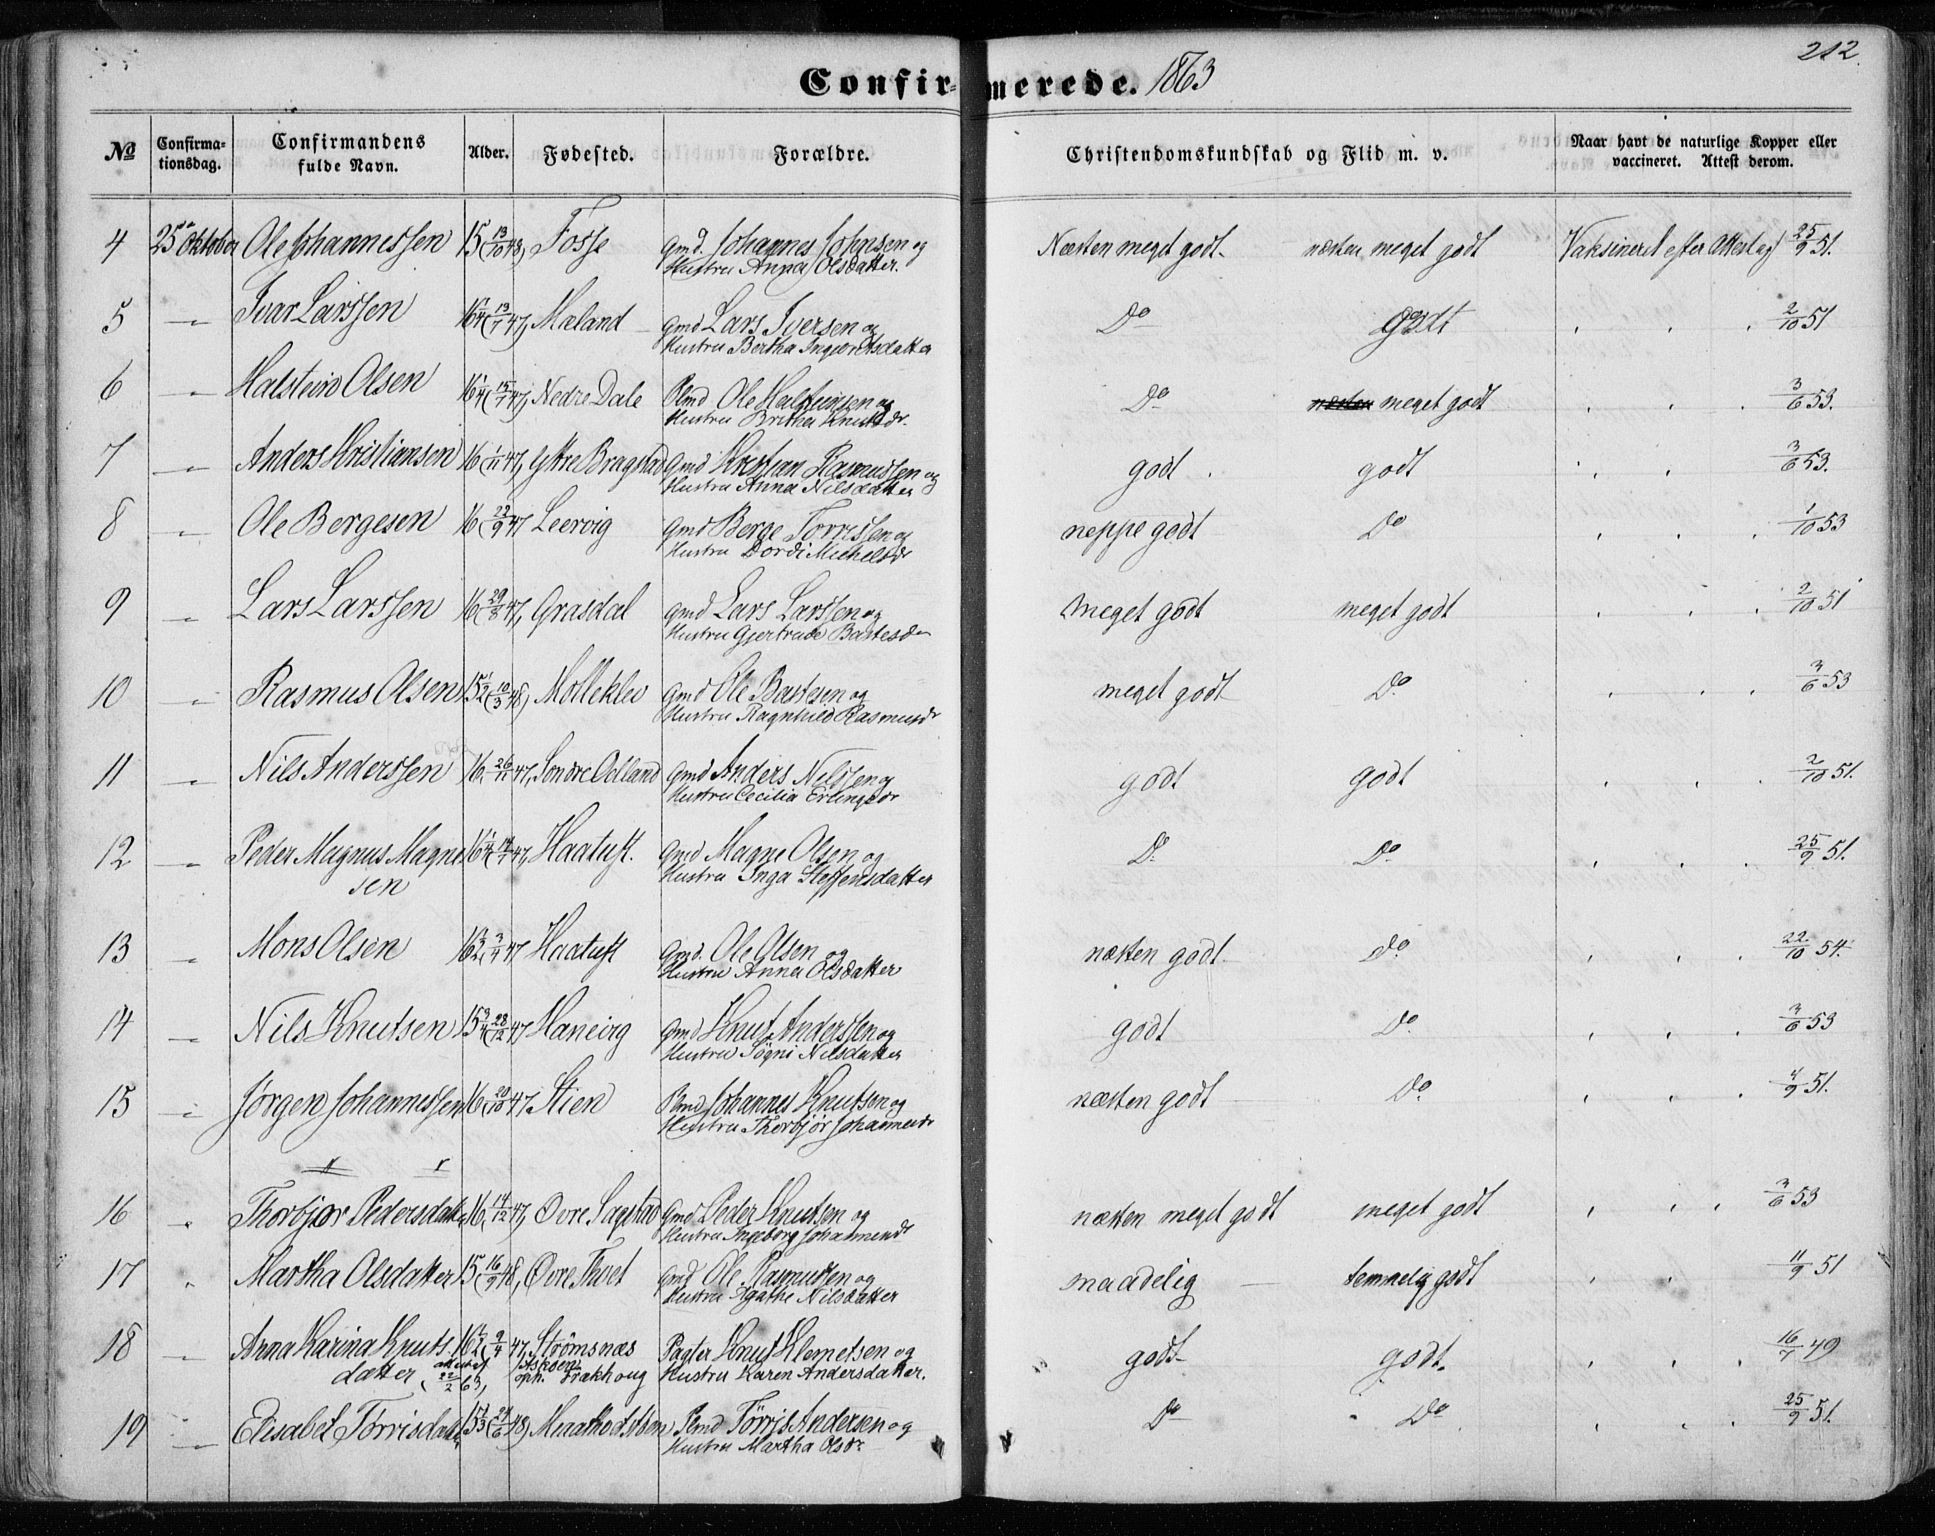 212
Confirmerede. 1863
No
Confirmationsdag.
Confirmandens fulde Navn.
Alder.
Fødested.
Forældre.
Christendomskundskab og Flid m. v.
Naar havt de naturlige Kopper eller vaccineret. Attest derom.
4 25 Oktober Ole Johannessen 15 (13/10 48) Fosse Gmd. Johannes Johnsen og Næsten meget godt næsten meget godt Vaksineret efter Attest ag 25/9 51.
Hustru Anna Olsdatter.
5 Ivar Larssen 16 1/4 (13/7 47) Mæland Gmd Lars Iversen og Do godt 2/10 51
Hustru Bertha Ingjertsdatter
6 Halsteno Olsen 16 1/4 (15/7 47) Nedre Dale Ole Halsteinsen og Do meget godt 3/6 53.
Hustru Britha Knutsdr.
7 Anders Kristiansen 16 1/11 47, Ytre Bragstad Gmd Kristian Rasmussen og godt godt 3/6 53.
Hustru Anna Nilsdatter
8 Ole Bergesen 16 (22/9 47 Leervig Gmd Berge Torrissen og neppe godt Do 1/10 53
Hustru Dordi Michelsdr
9 Lars Larssen 16 (29/8 47, Grasdal Gmd Lars Larssen og Meget godt meget godt 2/10 51
Hustru Gjertrude Bastesdr
10 Rasmus Olsen 15 1/2 (10/3 48) Molleklev Gmd Ole Bastesen og meget godt Do 3/6 53
Hustru Ragnhild Rasmusdr
11 Nils Anderssen 16 26/11 47, Søndre Odland Gmd Anders Nilssen og godt godt 2/10 51.
Hustru Cecilia Erlingsdr
12 Peder Magnus Magne 16 1/4 14/7 47, Haatuft. Gmd Magne Olsen og Do Do 25/9 51.
sen Hustru Inga Steffensdatter
13 Mons Olsen 16 1/2 3/4 47 Haatuft Gmd. Ole Olsen og næsten godt Do 22/10 54.
Hustru Anna Olsdatter
14 Nils Knutsen 15 3/4 (23/12 47 Hanevig Gmd Knut Anderssen og godt Do 3/6 53
Hustru Søgni Nilsdatter
15 Jørgen Johannessen 16 (20/10 47 Stien Johannes Knutsen og næsten godt Do 4/9 51.
Hustru Thorbjør Johannesdr
16 Thorbjør Pedersdatter 16, 14/12 47, Øvre Sagstad Gmd Peder Knutsen og næsten meget godt meget godt 3/6 53
Hustru Ingeborg Johannesdr
17 Martha Olsdatter 15 (16/9 48, Øvre Tveet Gmd Ole Rasmussen og maadelig temmelig godt 11/9 51
Hustru Agathe Nilsdatter
18 Anna Karina Knuts 16 1/2 9/4 47, Strömsnæs Pagter Knut Klemetsen og godt godt. 16/7 49
datter attestat 22/2 63, Askøen oph. Frækhoug Hustru Karen Andersdatter.
19 Elisabet Tørrisdatter 15 1/3 (24/6 48) Tørris Andersen og Do Do 25/9 51.
Hustru Martha Olsdr